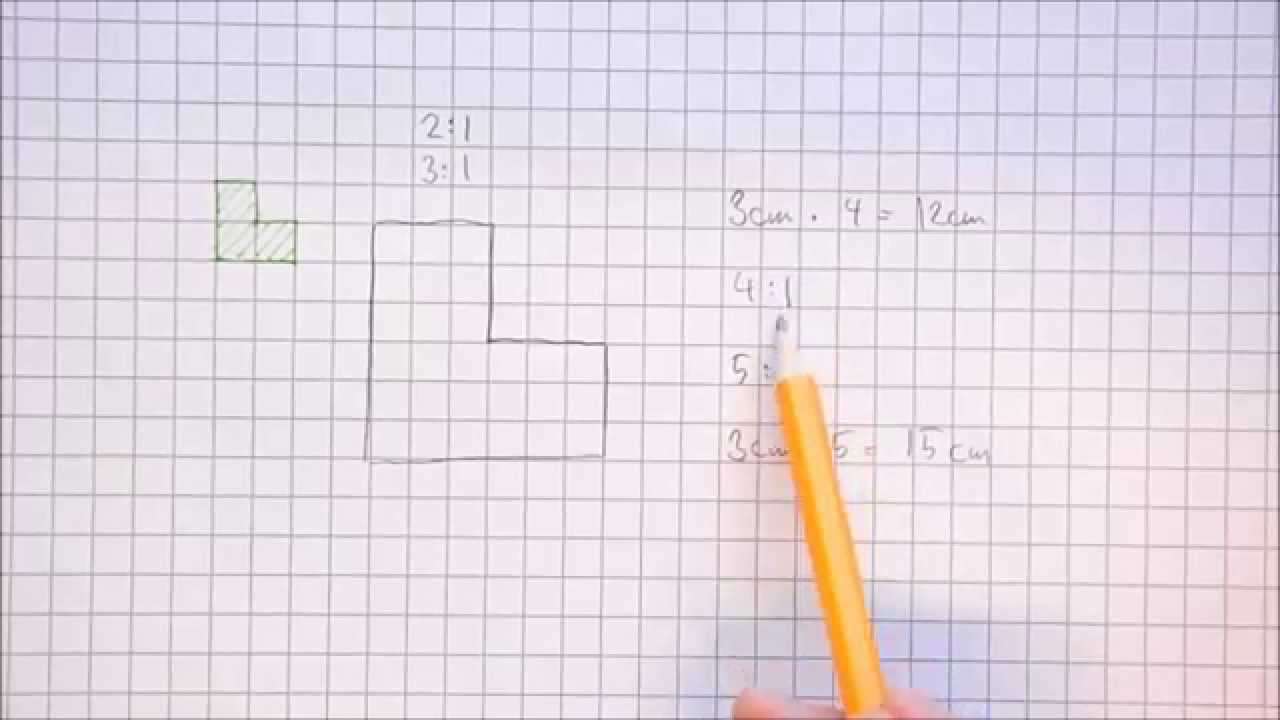 2:1
3:1
3cm · 4 = 12cm
4:1
5:
3cm 5 = 15cm